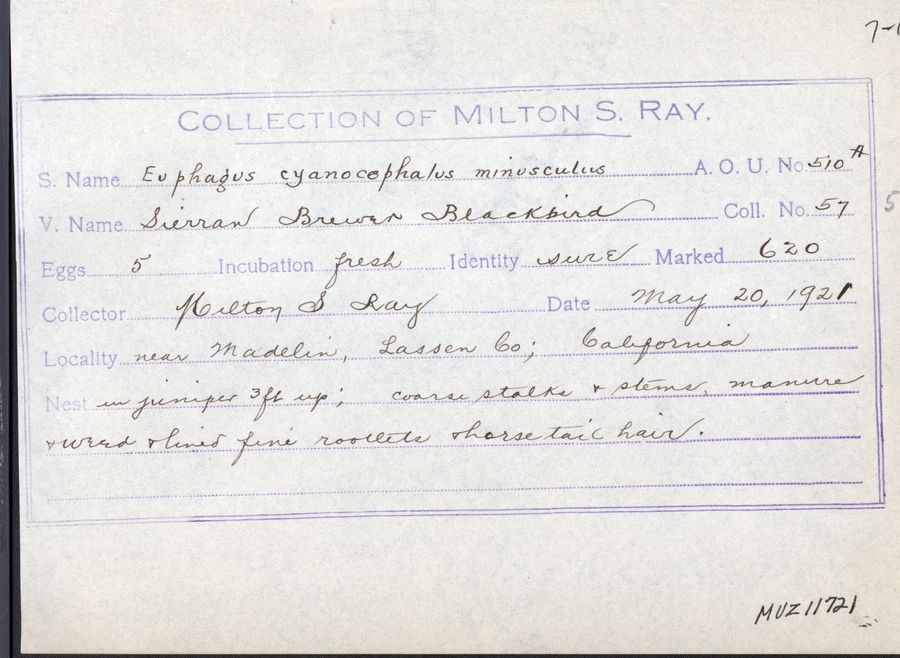 7-
COLLECTION OF MILTON S. RAY.
S. Name Euphagus cyanocephalus minusculus A. O. U. No. 510A
V. Name Sierran Brewer Blackbird Coll. No. 57
5
Eggs 5 Incubation fresh Identity sure Marked 620
Collector Milton S Ray Date May 20, 1921
Locality near Madelin, Lassen Co; California
Nest in juniper 3ft up; coarse stalks & stems, manure
& weed & lined fine rootlets & horse tail hair.
MVZ11721